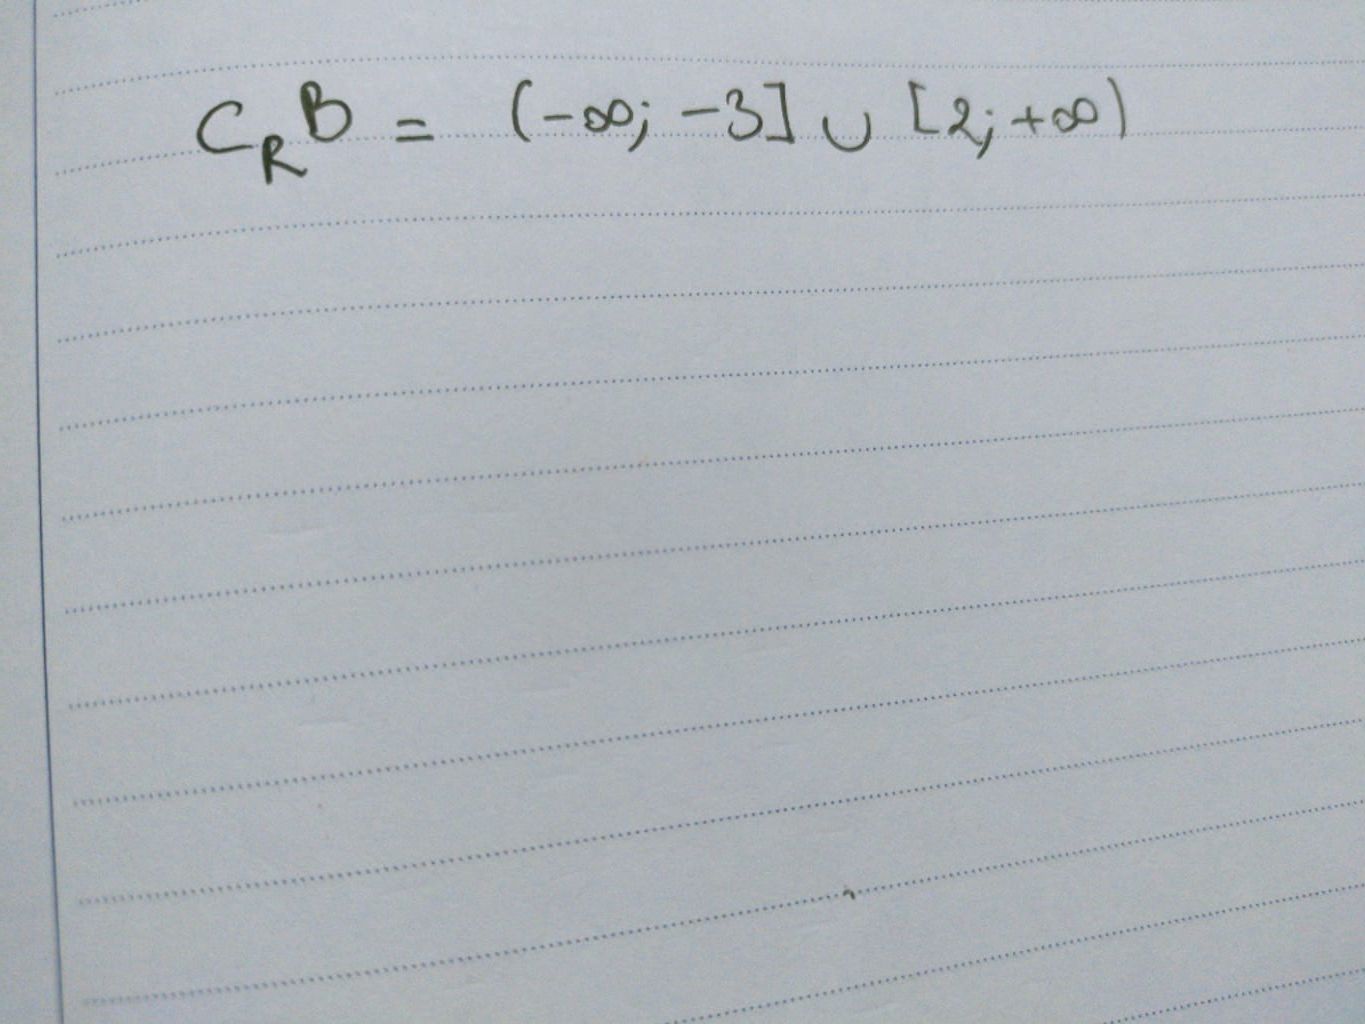 C_R B = (-∞; -3] ∪ [2; +∞)